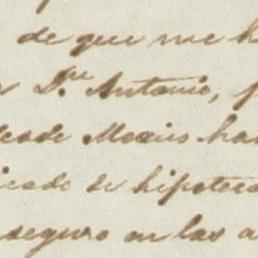 de que me h
Dn. Antonio,
desde Mexico ha
icado de hipoteca
seguro en las a